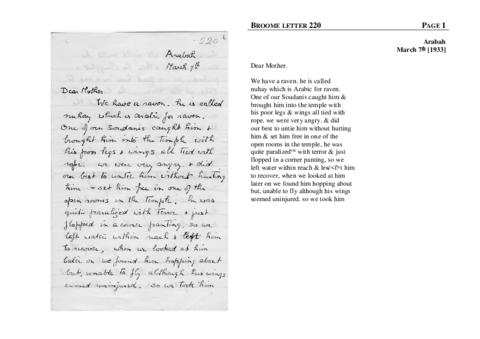 220
Arabah
March 7th
Dear Mother
We have a raven. he is called
nuhay which is Arabic for raven.
One of our Soudanis caught him &
brought him into the temple with
his poor legs & wings all tied with
rope. we were very angry. & did
our best to untie him without hurting
him & set him free in one of the
open rooms in the temple, he was
quite paralized with terror & just
flopped in a corner panting, so we
left water within reach & left him
to recover, when we looked at him
later on we found him hopping about
but, unable to fly although his wings
seemed uninjured. so we took him
BROOME LETTER 220 PAGE 1
Arabah
March 7th [1933]
Dear Mother.
We have a raven. he is called
nuhay which is Arabic for raven.
One of our Soudanis caught him &
brought him into the temple with
his poor legs & wings all tied with
rope. we were very angry. & did
our best to untie him without hurting
him & set him free in one of the
open rooms in the temple, he was
quite paralized with terror & just
flopped in a corner panting, so we
left water within reach & lew<f>t him
to recover, when we looked at him
later on we found him hopping about
but, unable to fly although his wings
seemed uninjured. so we took him